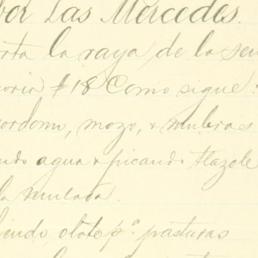 por Las Mercedes.
rta la raya de la sem
oria #18 Como sigue:
ordomo, mozo, y
ndo agua y picando tlazole
la
iendo otate pª pasturas